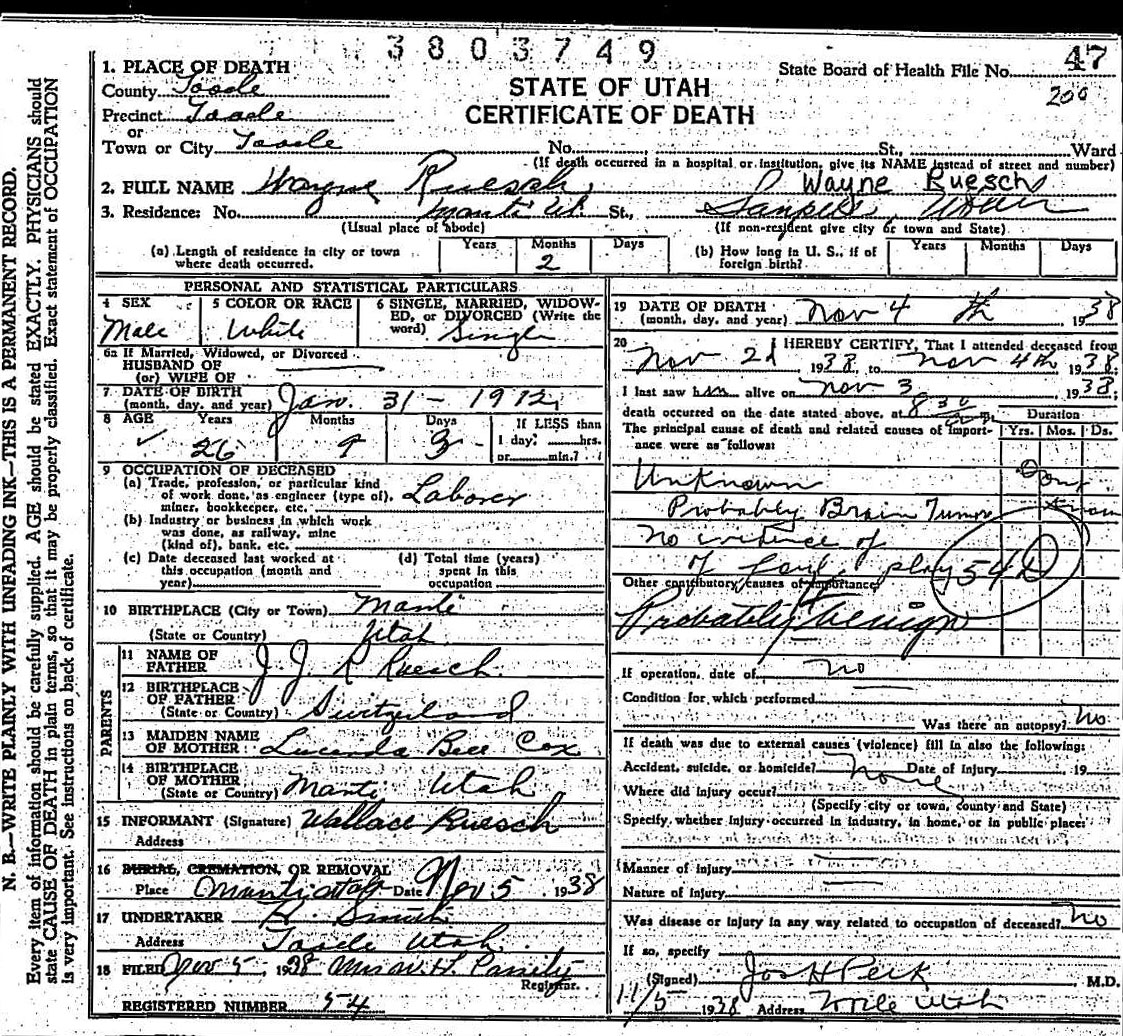 3803749
47
1. PLACE OF DEATH
State Board of Health File No.
County Tooele
STATE OF UTAH
200
Precinct Tooele
CERTIFICATE OF DEATH
or
Town or City Tooele No. St., Ward
(If death occurred in a hospital or institution, give its NAME instead of street and number)
2. FULL NAME Wayne Ruesch, Wayne Ruesch
3. Residence: No. Manti Ut. St., Sanpete, Utah
(Usual place of abode) (If non-resident give city or town and State)
(a) Length of residence in city or town where death occurred. Years Months 2 Days
(b) How long in U. S., if of foreign birth? Years Months Days
PERSONAL AND STATISTICAL PARTICULARS
4 SEX Male
5 COLOR OR RACE White
6 SINGLE, MARRIED, WIDOW-
ED, or DIVORCED (Write the
word) Single
6a If Married, Widowed, or Divorced
HUSBAND OF
(or) WIFE OF
7 DATE OF BIRTH
(month, day, and year) Jan. 31 - 1912
8 AGE Years Months Days If LESS than
✓ 26 9 3 1 day? hrs.
or min.?
9 OCCUPATION OF DECEASED
(a) Trade, profession, or particular kind
of work done, as engineer (type of), Laborer
miner, bookkeeper, etc.
(b) Industry or business in which work
was done, as railway, mine
(kind of), bank, etc.
(c) Date deceased last worked at
this occupation (month and
year)
(d) Total time (years)
spent in this
occupation
10 BIRTHPLACE (City or Town) Manti
(State or Country) Utah
PARENTS
11 NAME OF
FATHER J. J. R Ruesch.
12 BIRTHPLACE
OF FATHER
(State or Country) Switzerland
13 MAIDEN NAME
OF MOTHER Lucinda Bell Cox
14 BIRTHPLACE
OF MOTHER
(State or Country) Manti Utah
15 INFORMANT (Signature) Wallace Ruesch
Address
16 BURIAL, CREMATION, OR REMOVAL
Place Manti Utah Date Nov 5 1938
17 UNDERTAKER Smith
Address Tooele Utah.
18 FILED Nov 5, 1938 Mrs W. H.
Registrar.
REGISTERED NUMBER 54
19 DATE OF DEATH
(month, day, and year) Nov 4 th 1938
20 I HEREBY CERTIFY, That I attended deceased from
Nov 2d 1938, to Nov 4th 1938;
I last saw him alive on Nov 3 1938;
death occurred on the date stated above, at 8 30 m. Duration
The principal cause of death and related causes of import-
ance were as follows: Yrs. Mos. Ds.
Unknown
Probably Brain Tumor
No evidence of
of foul play 54D
Other contributory causes of importance
Probably Benign
If operation, date of no
Condition for which performed
Was there an autopsy? no
If death was due to external causes (violence) fill in also the following:
Accident, suicide, or homicide? None Date of injury 19
Where did injury occur?
(Specify city or town, county and State)
Specify, whether injury occurred in industry, in home, or in public place:
Manner of injury
Nature of injury
Was disease or injury in any way related to occupation of deceased? no
If so, specify
(Signed) Jos H Peck M.D.
11/5 1938 Address Tooele Utah
N. B.—WRITE PLAINLY WITH UNFADING INK—THIS IS A PERMANENT RECORD.
Every item of information should be carefully supplied. AGE should be stated EXACTLY. PHYSICIANS should
state CAUSE OF DEATH in plain terms, so that it may be properly classified. Exact statement of OCCUPATION
is very important. See instructions on back of certificate.